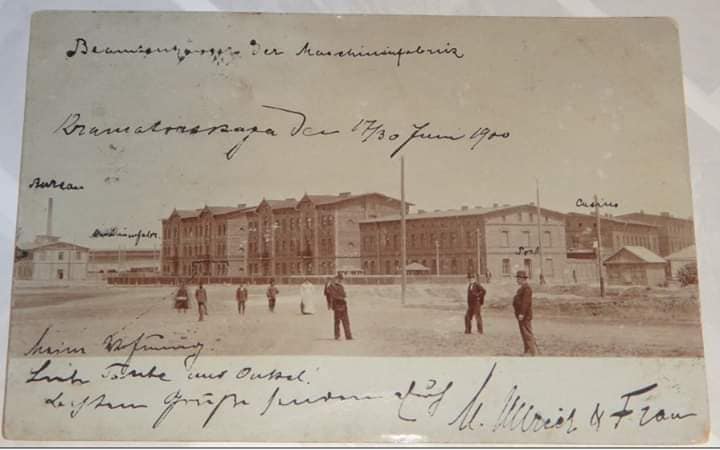 der Maschinenfabrik
Kramatorskaja den 17/30 Juni 1900
Bureau
Casino
meine Wohnung.
Liebe Tante und Onkel!
besten Grüße senden Euch
M. Ullrich & Frau